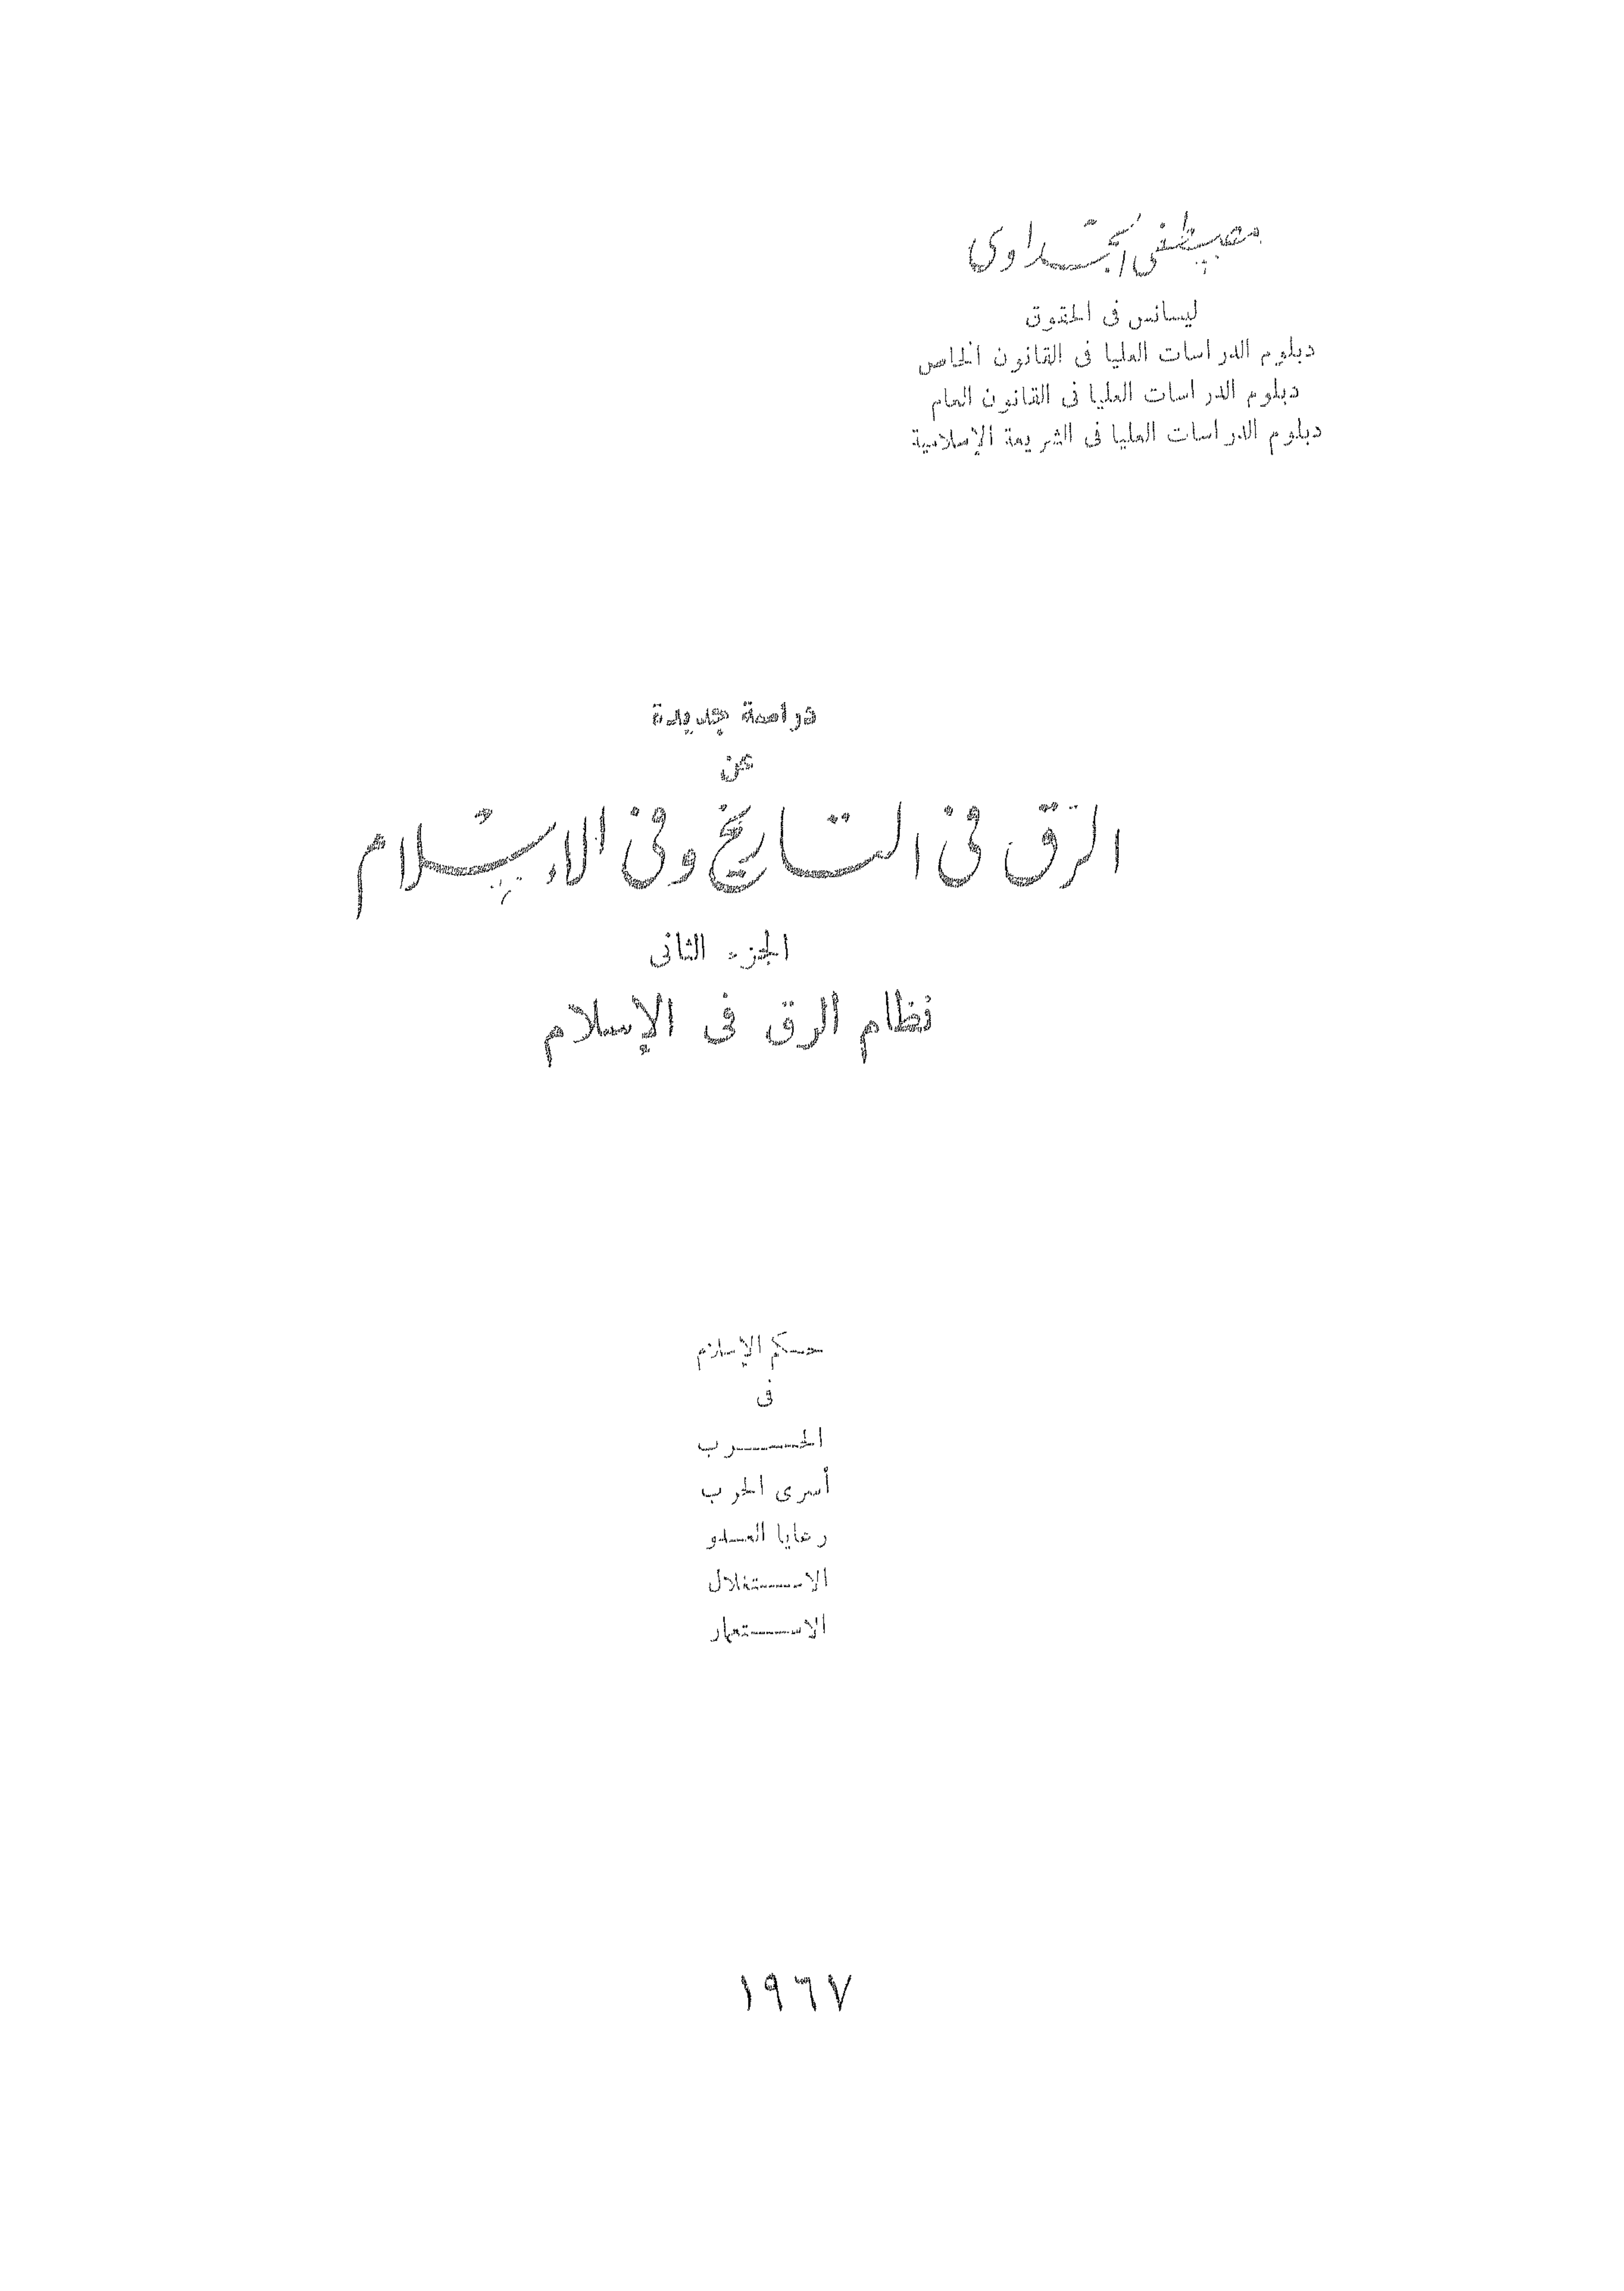 مصطفى الجداوى
ليسانس فى الحقوق
دبلوم الدراسات العليا فى القانون الخاص
دبلوم الدراسات العليا فى القانون العام
دبلوم الدراسات العليا فى الشريعة الإسلامية
دراسة جديدة
عن
الرق فى التاريخ وفى الإسلام
الجزء الثانى
نظام الرق فى الإسلام
حكم الإسلام
فى
الحرب
أسرى الحرب
رعايا العدو
الاستغلال
الاستعمار
١٩٦٧